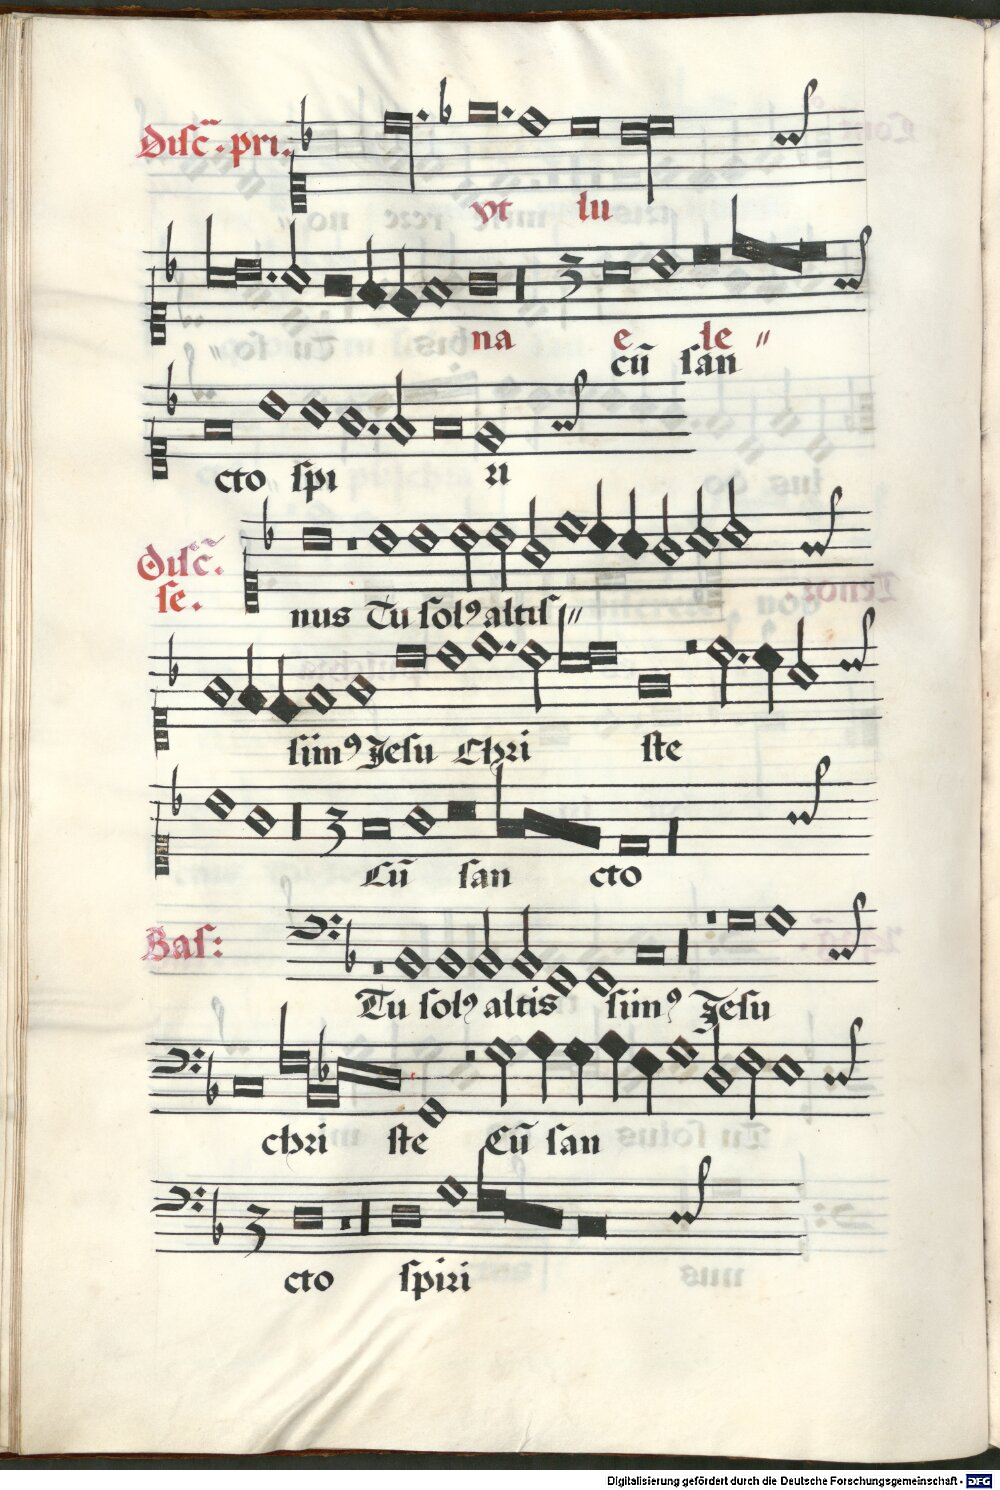 Diſc̄. pri.
vt lu
na e le〃
cū ſan
cto ſpi ri
Diſc̄.
ſe.
nus Tu ſolꝰ altiſ〃
ſimꝰ Jeſu Chri ſte
Cū ſan cto
Baſ:
Tu ſolꝰ altis ſimꝰ Jeſu
chri ſte Cū ſan
cto ſpiri
Digitalisierung gefördert durch die Deutsche Forschungsgemeinschaft - DFG